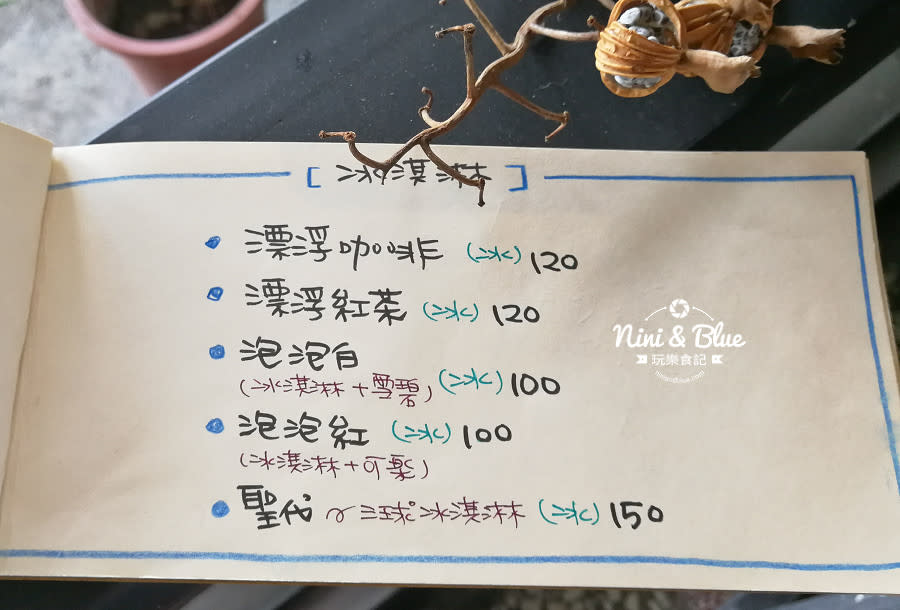 [ 冰淇淋 ]
• 漂浮咖啡 (冰) 120
• 漂浮紅茶 (冰) 120
• 泡泡白 (冰) 100
(冰淇淋+雪碧)
• 泡泡紅 (冰) 100
(冰淇淋+可樂)
• 聖代 ~ 三球冰淇淋 (冰) 150
Nini & Blue
玩樂食記
niniandblue.com